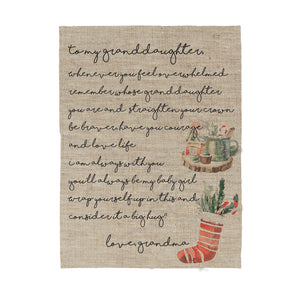 to my granddaughter,
whenever you feel overwhelmed
remember whose granddaughter
you are and straighten your crown
be brave, have you courage
and love life
i am always with you
you'll always be my baby girl
wrap yourself up in this and
consider it a big hug!
love, grandma